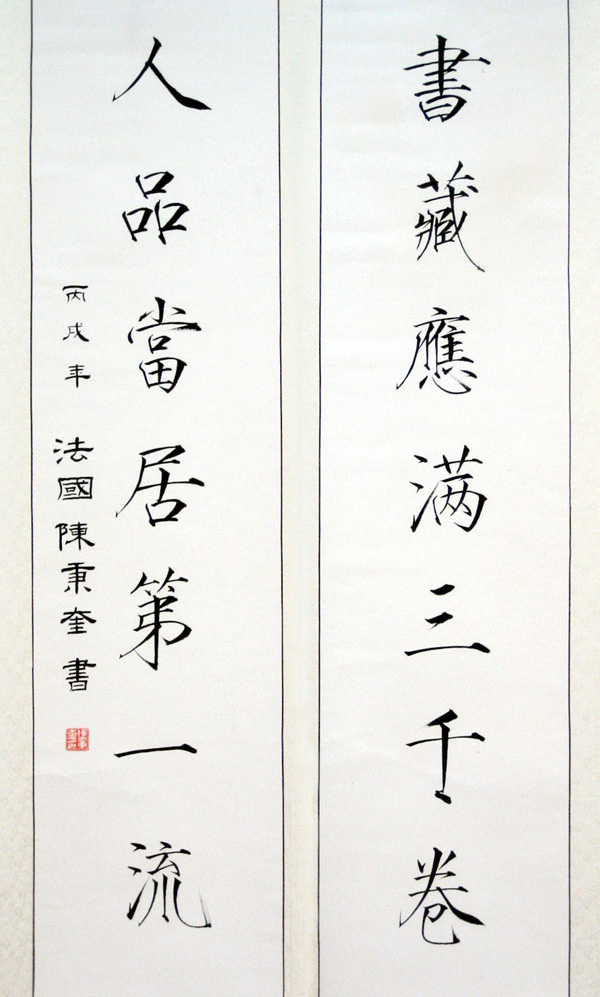 書藏應满三千卷
人品當居第一流
丙戌年 法國陳秉奎書